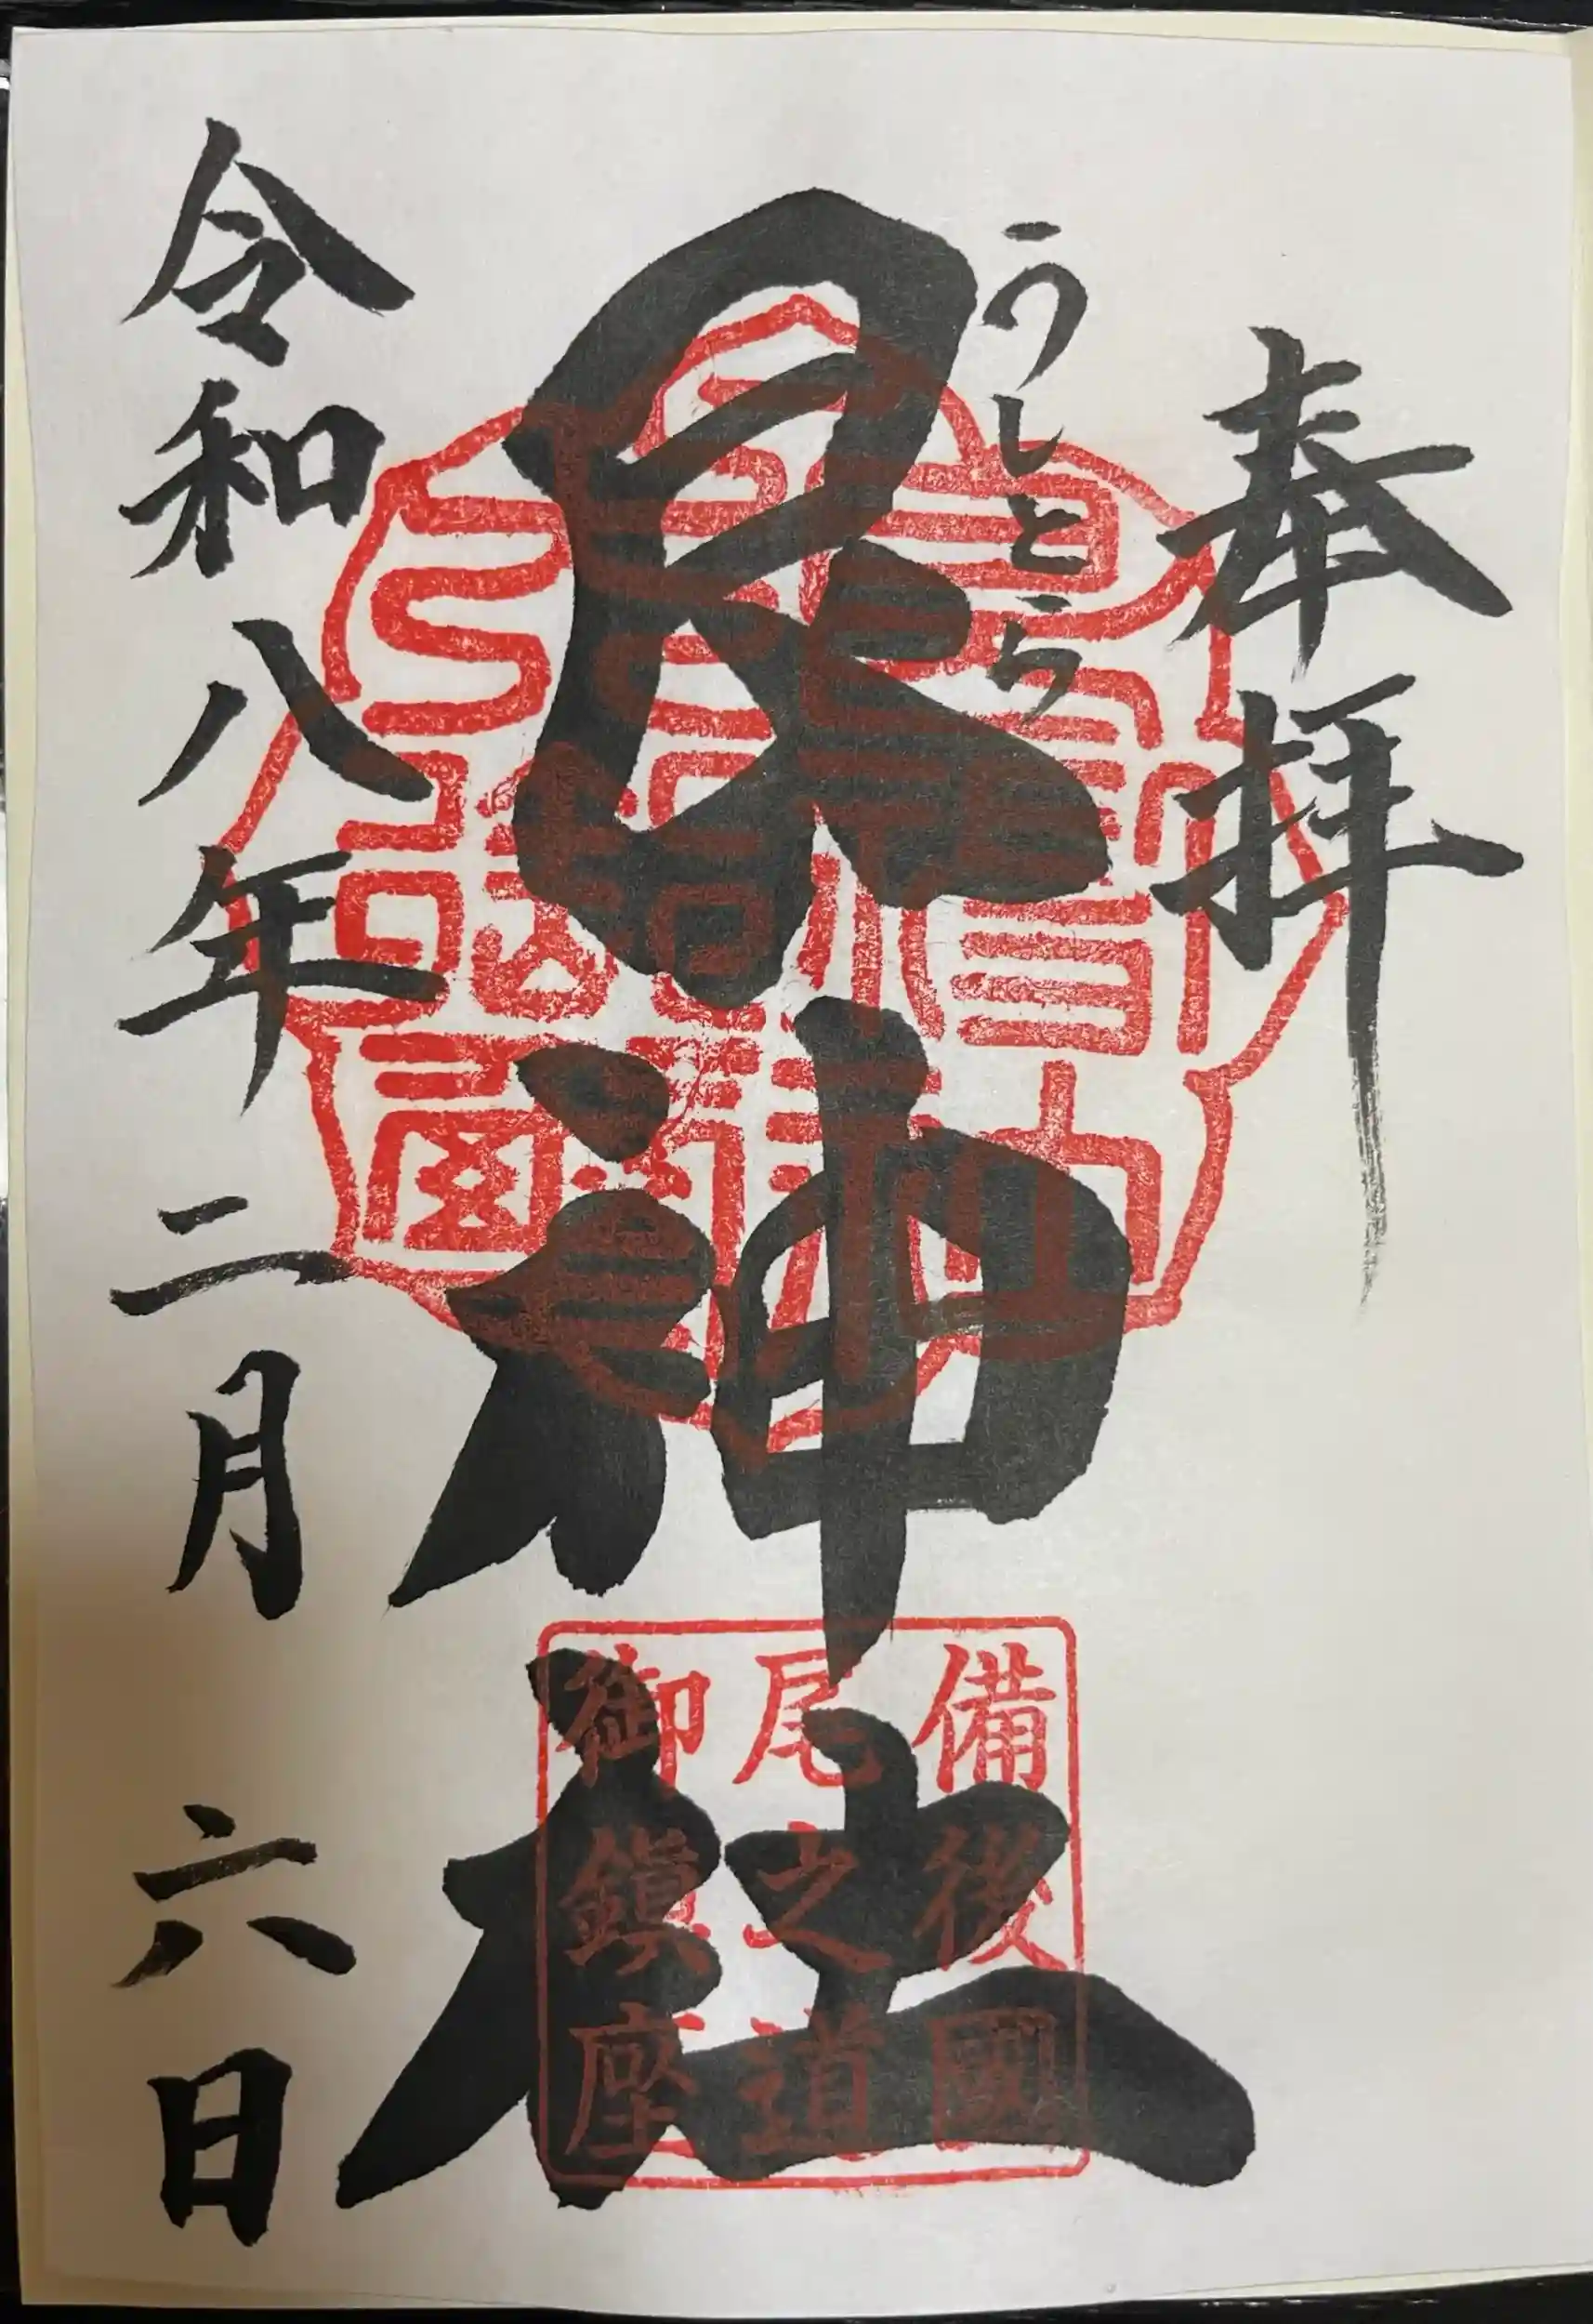 奉拝
うしとら
艮神社
備後國
尾之道
御鎮座
令和八年二月六日